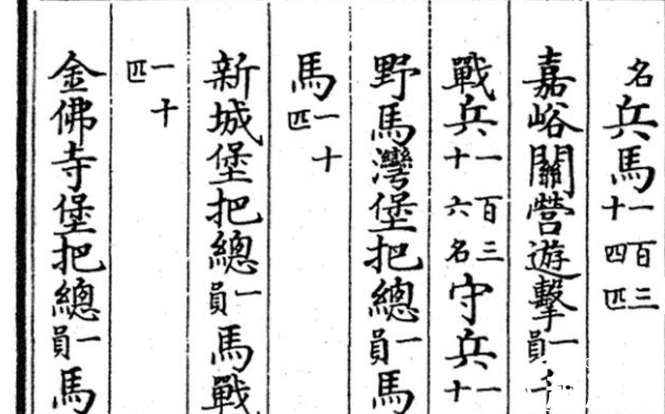 名兵馬一百三十四匹
嘉峪關營遊擊一員千
戰兵一百三十六名守兵一十
野馬灣堡把總一員馬
馬一十匹
新城堡把總一員馬戰
一十匹
金佛寺堡把總一員馬